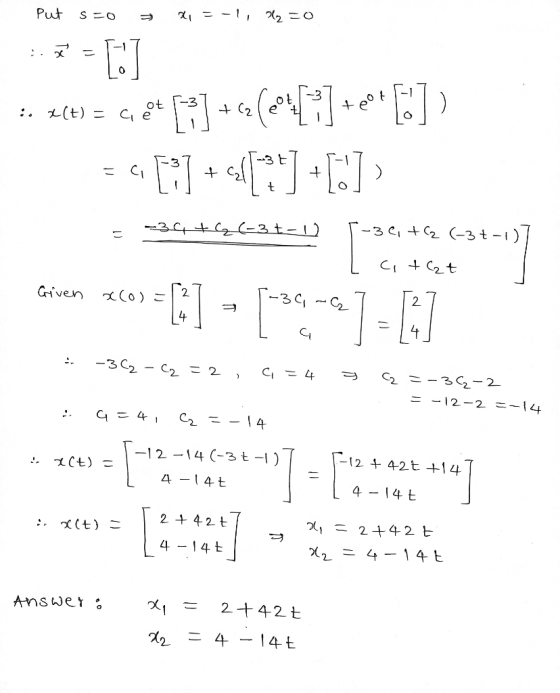 Put s=0 ⇒ x₁ = -1, x₂ = 0
∴ x⃗ = [-1; 0]
∴ x(t) = C₁ e^{0t} [-3; 1] + C₂ (e^{0t} t [-3; 1] + e^{0t} [-1; 0])
= C₁ [-3; 1] + C₂ ([-3t; t] + [-1; 0])
= ~~-3C₁ + C₂ (-3t-1)~~ [-3C₁ + C₂ (-3t-1); C₁ + C₂t]
Given x(0) = [2; 4] ⇒ [-3C₁ - C₂; C₁] = [2; 4]
∴ -3C₂ - C₂ = 2, C₁ = 4 ⇒ C₂ = -3C₂ - 2
= -12 - 2 = -14
∴ C₁ = 4, C₂ = -14
∴ x(t) = [-12 - 14(-3t-1); 4 - 14t] = [-12 + 42t + 14; 4 - 14t]
∴ x(t) = [2 + 42t; 4 - 14t] ⇒ x₁ = 2 + 42t
x₂ = 4 - 14t
Answer: x₁ = 2 + 42t
x₂ = 4 - 14t